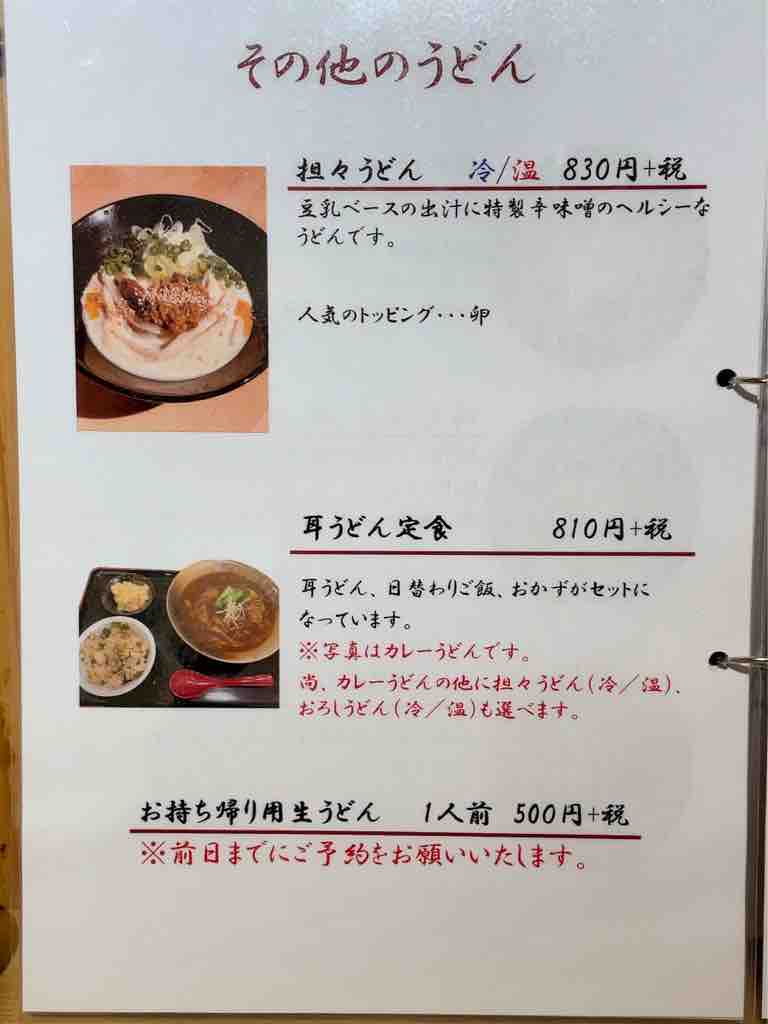 その他のうどん
担々うどん 冷/温 830円+税
豆乳ベースの出汁に特製辛味噌のヘルシーな
うどんです。
人気のトッピング・・・卵
耳うどん定食 810円+税
耳うどん、日替わりご飯、おかずがセットに
なっています。
※写真はカレーうどんです。
尚、カレーうどんの他に担々うどん(冷/温)、
おろしうどん(冷/温)も選べます。
お持ち帰り用生うどん 1人前 500円+税
※前日までにご予約をお願いいたします。